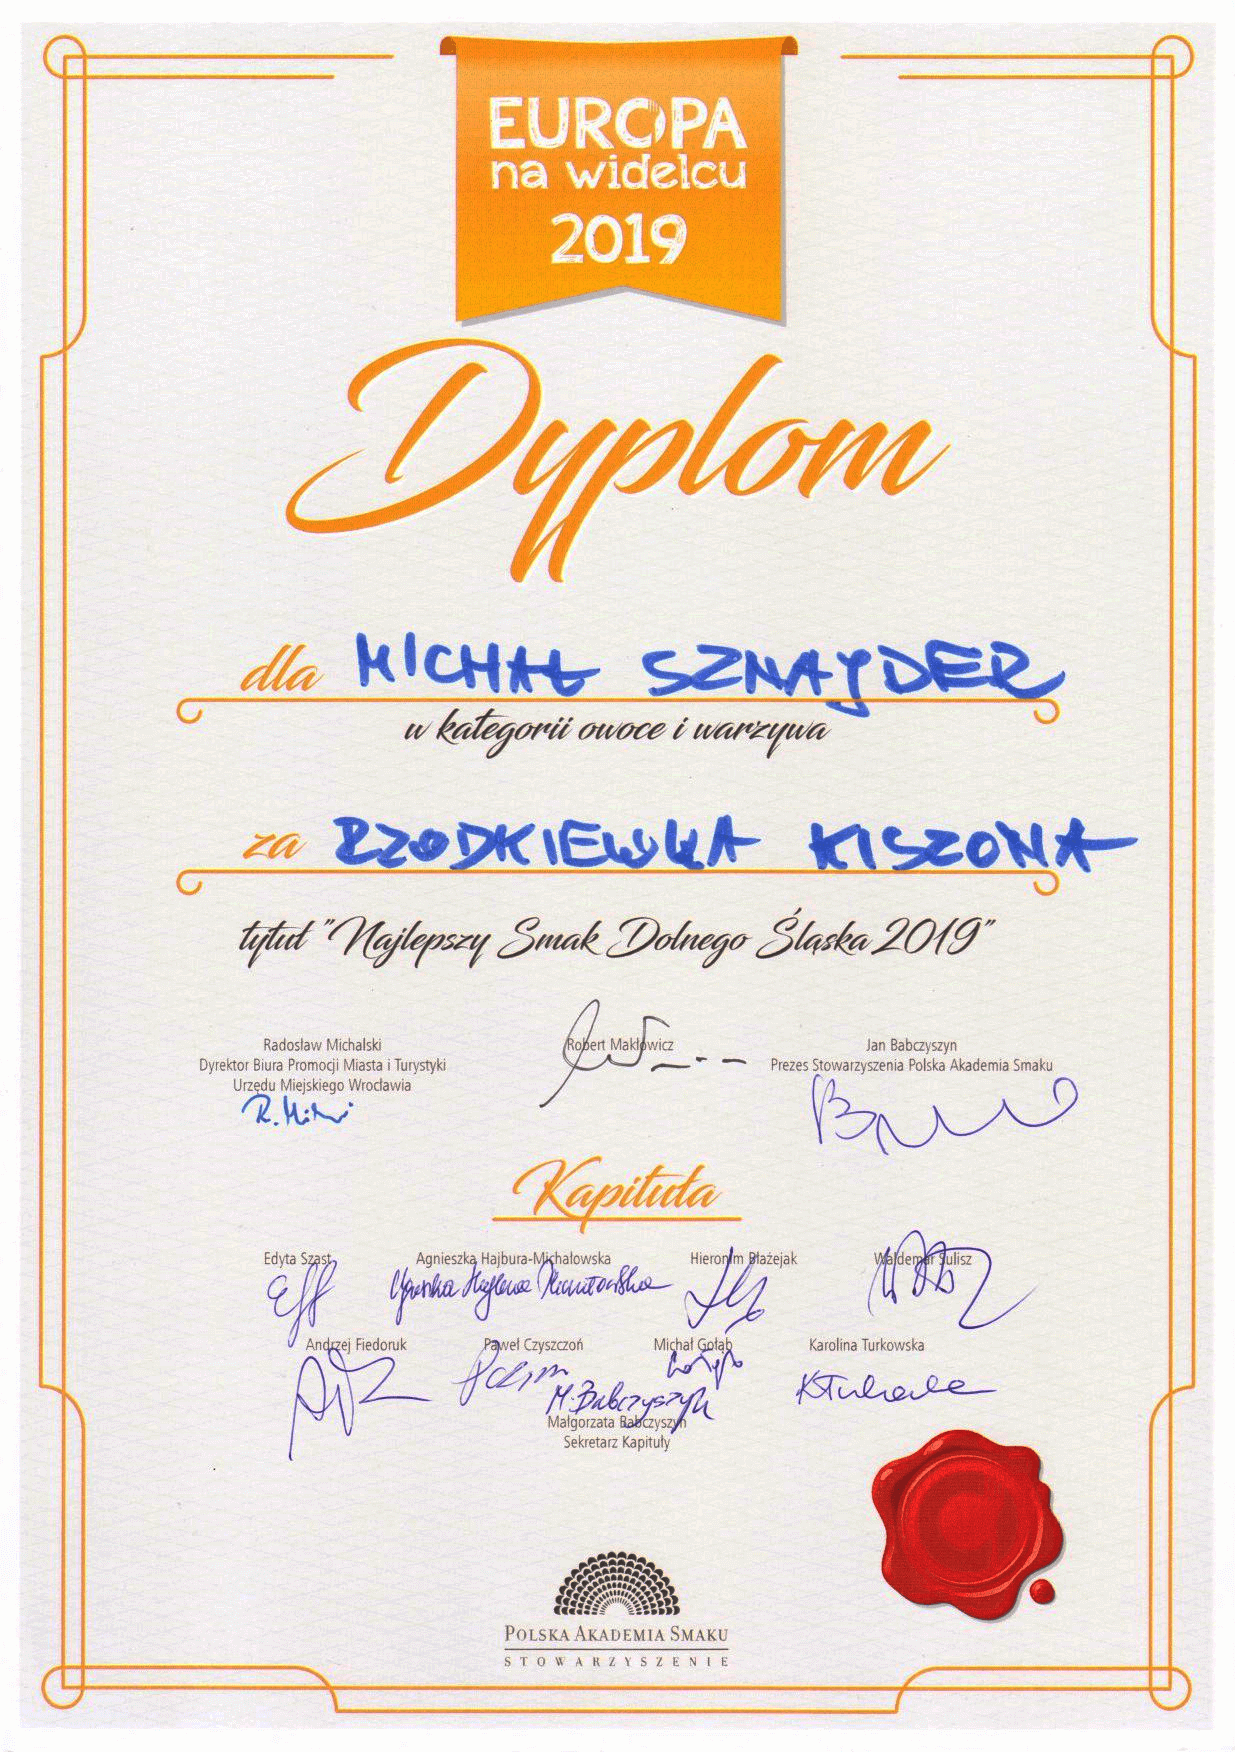 EUROPA
na widelcu
2019
Dyplom
dla MICHAŁ SZNAJDER
w kategorii owoce i warzywa
za RZODKIEWKA KISZONA
tytuł "Najlepszy Smak Dolnego Śląska 2019"
Radosław Michalski
Dyrektor Biura Promocji Miasta i Turystyki
Urzędu Miejskiego Wrocławia
Robert Makłowicz
Jan Babczyszyn
Prezes Stowarzyszenia Polska Akademia Smaku
Kapituła
Edyta Szast
Agnieszka Hajbura-Michałowska
Hieronim Błażejak
Waldemar Sulisz
Andrzej Fiedoruk
Paweł Czyszczoń
Michał Gołąb
Karolina Turkowska
M. Babczyszyn
Małgorzata Babczyszyn
Sekretarz Kapituły
POLSKA AKADEMIA SMAKU
STOWARZYSZENIE